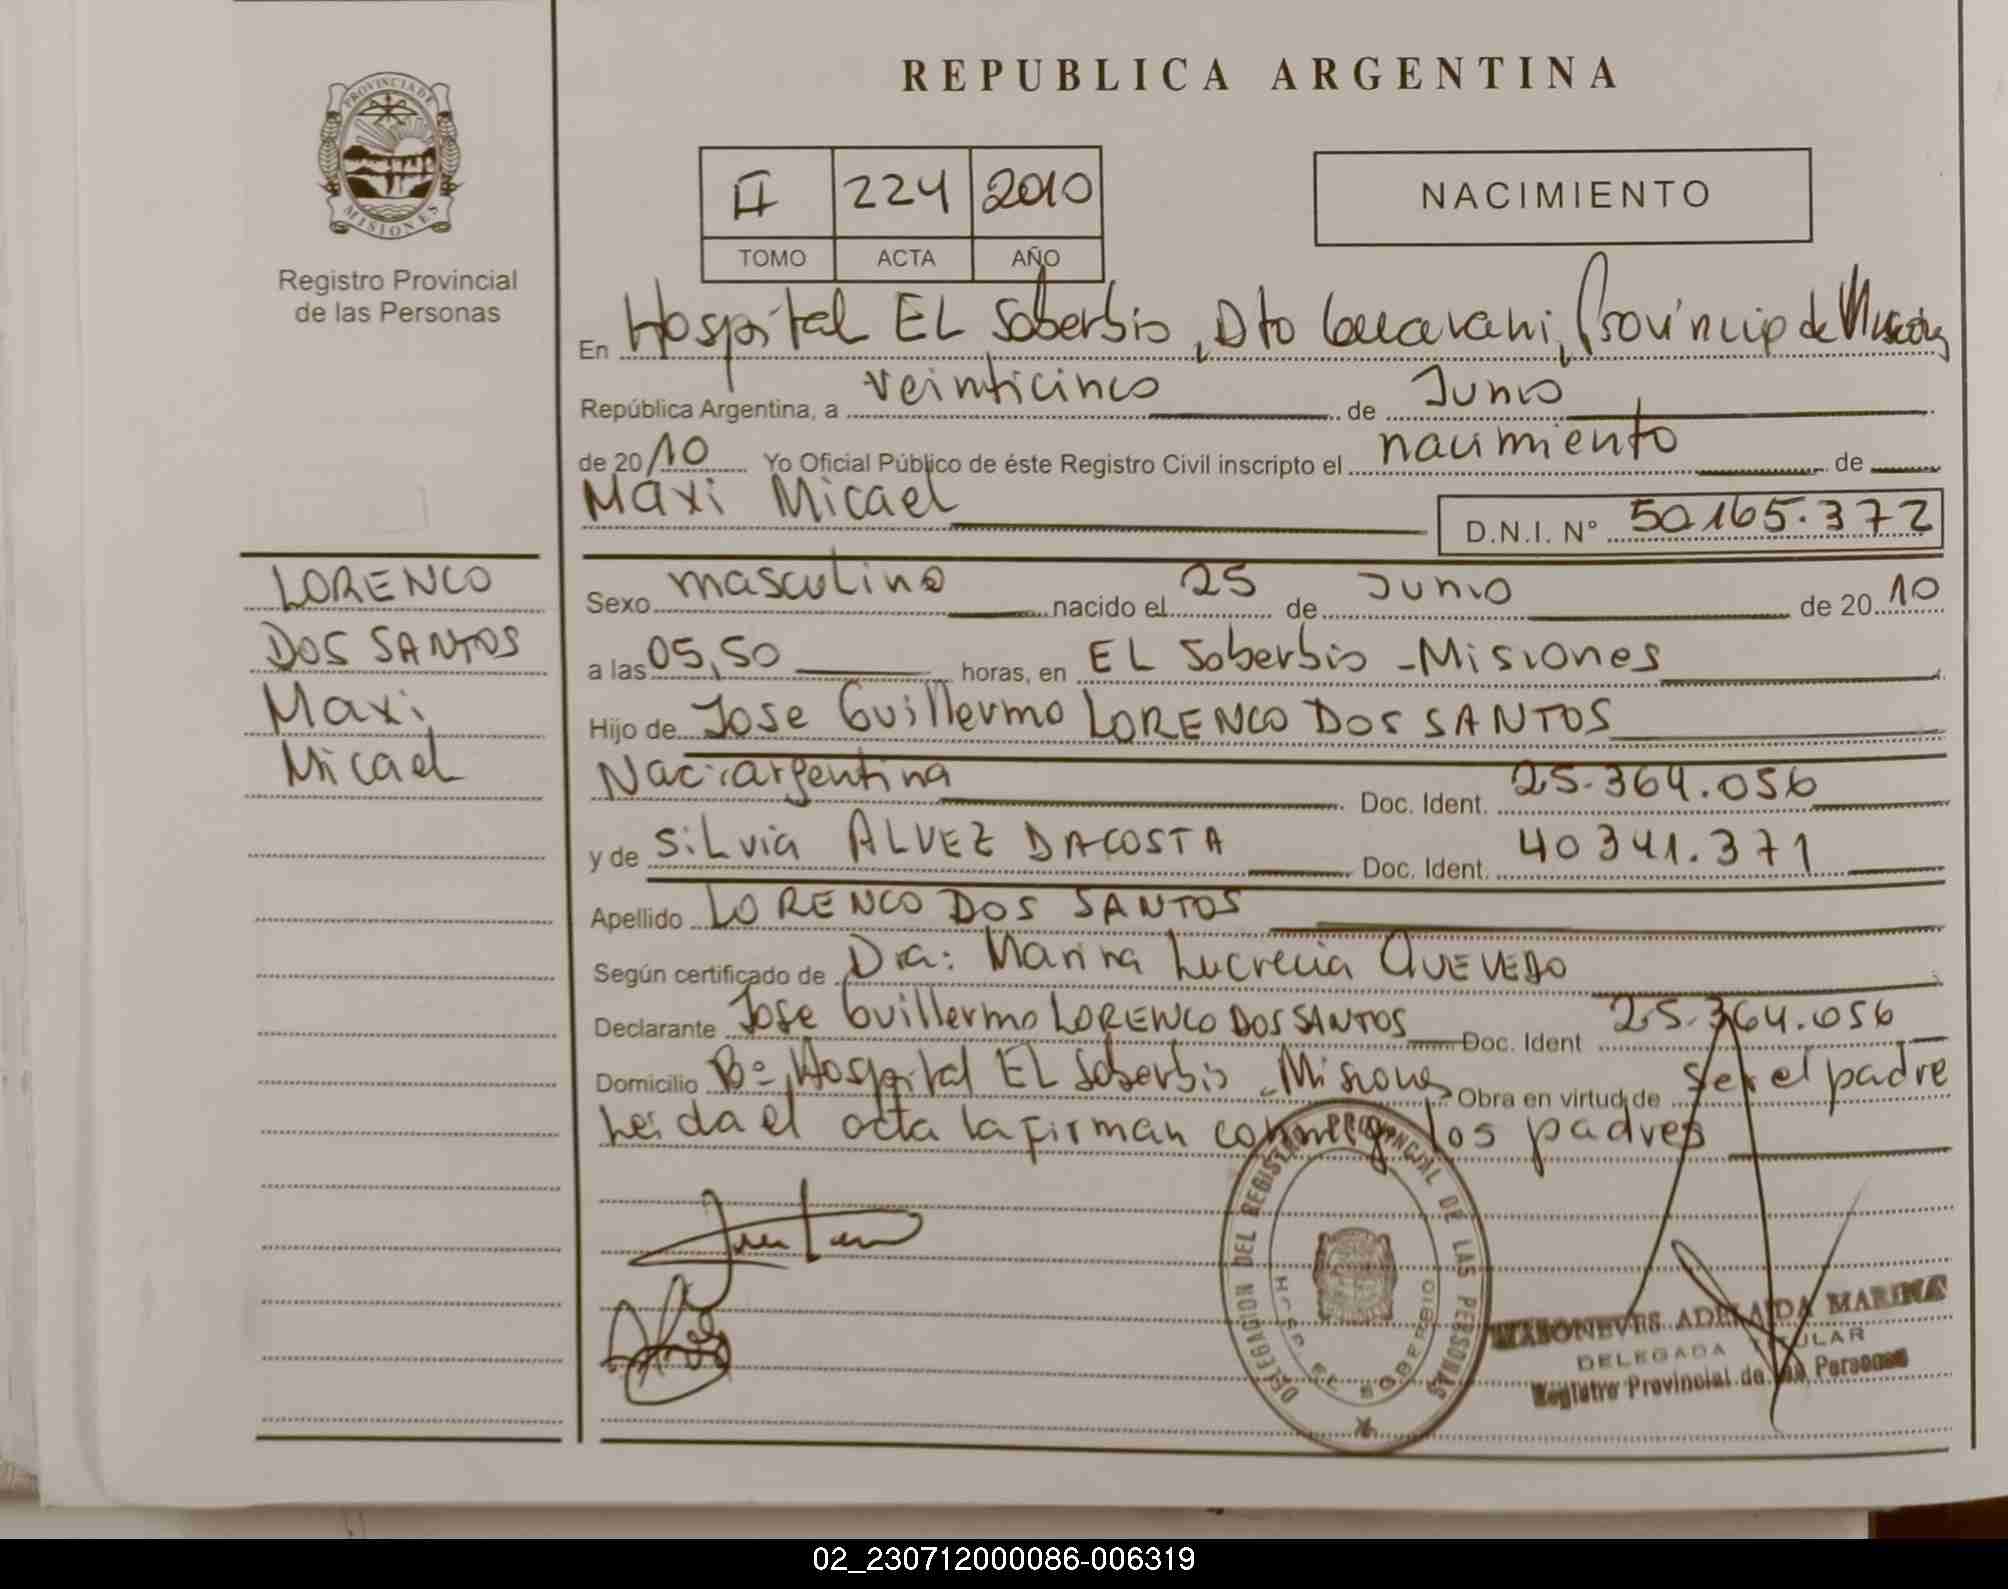 REPUBLICA ARGENTINA
PROVINCIA DE MISIONES
Registro Provincial
de las Personas
II 224 2010
TOMO ACTA AÑO
NACIMIENTO
En Hospital EL Soberbio, Dto Guarani, Provincia de Misiones
República Argentina, a veinticinco de Junio
de 20/10 Yo Oficial Público de éste Registro Civil inscripto el nacimiento de
Maxi Micael D.N.I. Nº 50.165.372
LORENCO
DOS SANTOS
Maxi
Micael
Sexo masculino nacido el 25 de Junio de 20 10
a las 05,50 horas, en EL Soberbio - Misiones
Hijo de Jose Guillermo LORENCO DOS SANTOS
Nac: argentina Doc. Ident. 25.364.056
y de SiLvia ALVEZ DACOSTA Doc. Ident. 40341.371
Apellido LORENCO DOS SANTOS
Según certificado de Dra: Marina Lucrecia QUEVEDO
Declarante Jose Guillermo LORENCO DOS SANTOS Doc. Ident 25.364.056
Domicilio Bº Hospital EL Soberbio - Misiones Obra en virtud de ser el padre
Leida el acta la firman conmigo los padres
DELEGACION DEL REGISTRO PROVINCIAL DE LAS PERSONAS
HOSP. EL SOBERBIO
ADELAIDA MARINA
DELEGADA TITULAR
Registro Provincial de las Personas
02_230712000086-006319